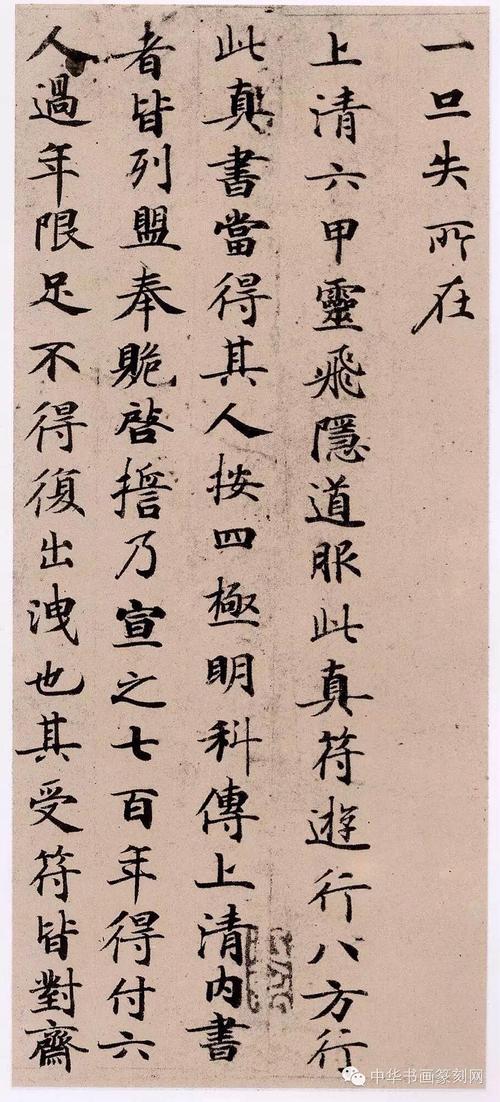 一旦失所在
上清六甲靈飛隱道服此真符遊行八方行
此真書當得其人按四極明科傳上清內書
者皆列盟奉貺啓擔乃宣之七百年得付六
人過年限足不得復出洩也其受符皆對齋
中华书画篆刻网